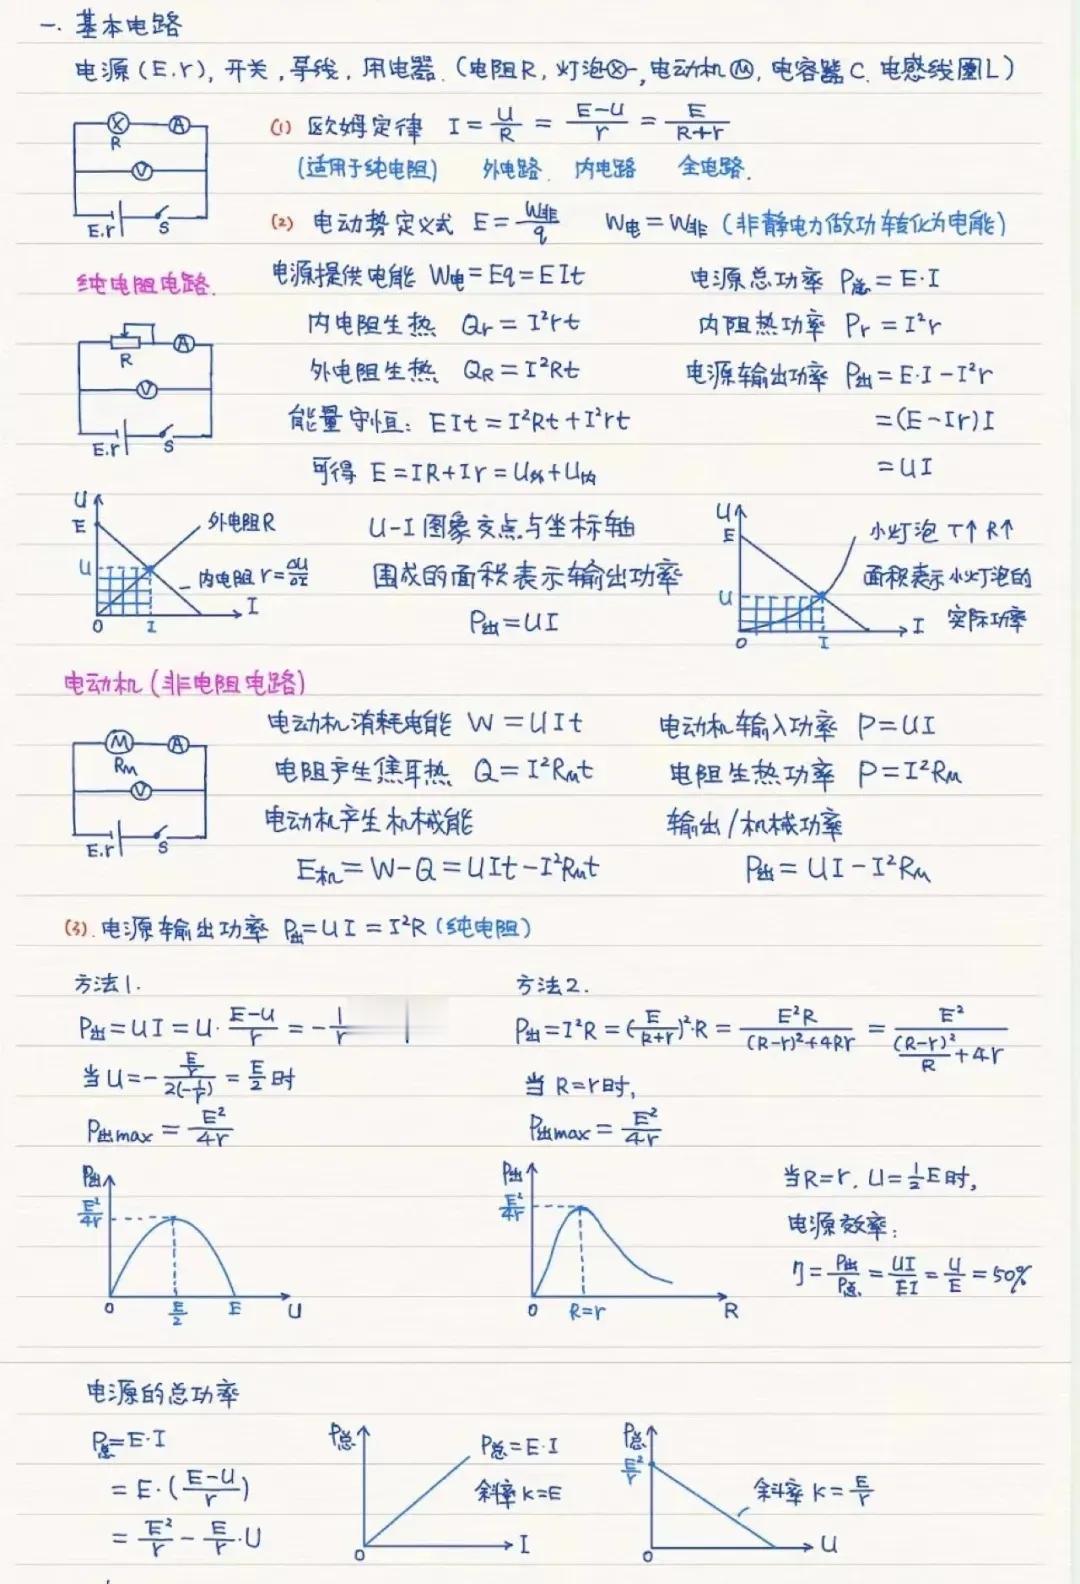 一. 基本电路
电源(E.r), 开关, 导线, 用电器. (电阻R, 灯泡⊗, 电动机Ⓜ, 电容器C. 电感线圈L)
R
A
V
E.r
S
(1) 欧姆定律 I = U/R = (E-U)/r = E/(R+r)
(适用于纯电阻) 外电路. 内电路 全电路.
(2) 电动势定义式 E = W非/q W电 = W非 (非静电力做功转化为电能)
纯电阻电路.
电源提供电能 W电 = Eq = EIt 电源总功率 P总 = E·I
内电阻生热 Qr = I²rt 内阻热功率 Pr = I²r
外电阻生热 QR = I²Rt 电源输出功率 P出 = E·I - I²r
能量守恒: EIt = I²Rt + I²rt = (E-Ir)I
可得 E = IR + Ir = U外 + U内 = UI
R
A
V
E.r
S
U
E
U
O
I
I
外电阻R
内电阻 r = ΔU/ΔI
U-I 图象交点与坐标轴
围成的面积表示输出功率
P出 = UI
U
E
U
O
I
I
小灯泡 T↑ R↑
面积表示小灯泡的
实际功率
电动机 (非电阻电路)
M
A
Rm
V
E.r
S
电动机消耗电能 W = UIt 电动机输入功率 P = UI
电阻产生焦耳热 Q = I²Rmt 电阻生热功率 P = I²RM
电动机产生机械能 输出/机械功率
E机 = W-Q = UIt - I²Rmt P出 = UI - I²RM
(3). 电源输出功率 P出 = UI = I²R (纯电阻)
方法1.
P出 = UI = U·(E-U)/r = -1/r
当 U = -(E/r)/(2(-1/r)) = E/2 时
P出max = E²/4r
方法2.
P出 = I²R = (E/(R+r))²·R = E²R/((R-r)²+4Rr) = E²/((R-r)²/R+4r)
当 R=r时,
P出max = E²/4r
P出
E²/4r
O
E/2
E
U
P出
E²/4r
O
R=r
R
当R=r. U=½E时,
电源效率:
η = P出/P总 = UI/EI = U/E = 50%
电源的总功率
P总 = E·I
= E·((E-U)/r)
= E²/r - E/r·U
P总
O
I
P总 = E·I
斜率 k = E
P总
E²/r
O
U
斜率 k = E/r